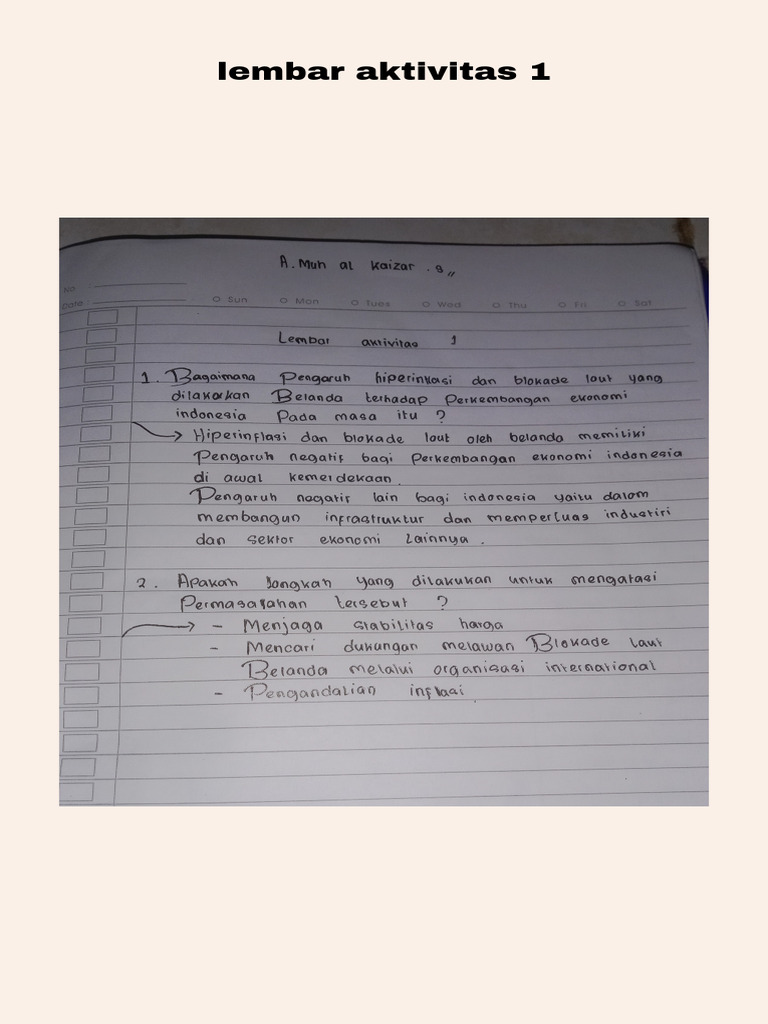 lembar aktivitas 1
A. Muh al Kaizar . s,,
No :
Date :
Sun Mon Tues Wed Thu Fri Sat
Lembar aktivitas 1
1. Bagaimana Pengaruh hiperinflasi dan blokade laut yang
dilakukan Belanda terhadap Perkembangan ekonomi
indonesia Pada masa itu ?
Hiperinflasi dan blokade laut oleh belanda memiliki
Pengaruh negatif bagi Perkembangan ekonomi indonesia
di awal kemerdekaan.
Pengaruh negatif lain bagi indonesia yaitu dalam
membangun infrastruktur dan memperluas industiri
dan sektor ekonomi lainnya .
2. Apakah langkah yang dilakukan untuk mengatasi
Permasarahan tersebut ?
- Menjaga stabilitas harga
- Mencari dukungan melawan Blokade laut
Belanda melalui organisasi international
- Pengandalian inflasi